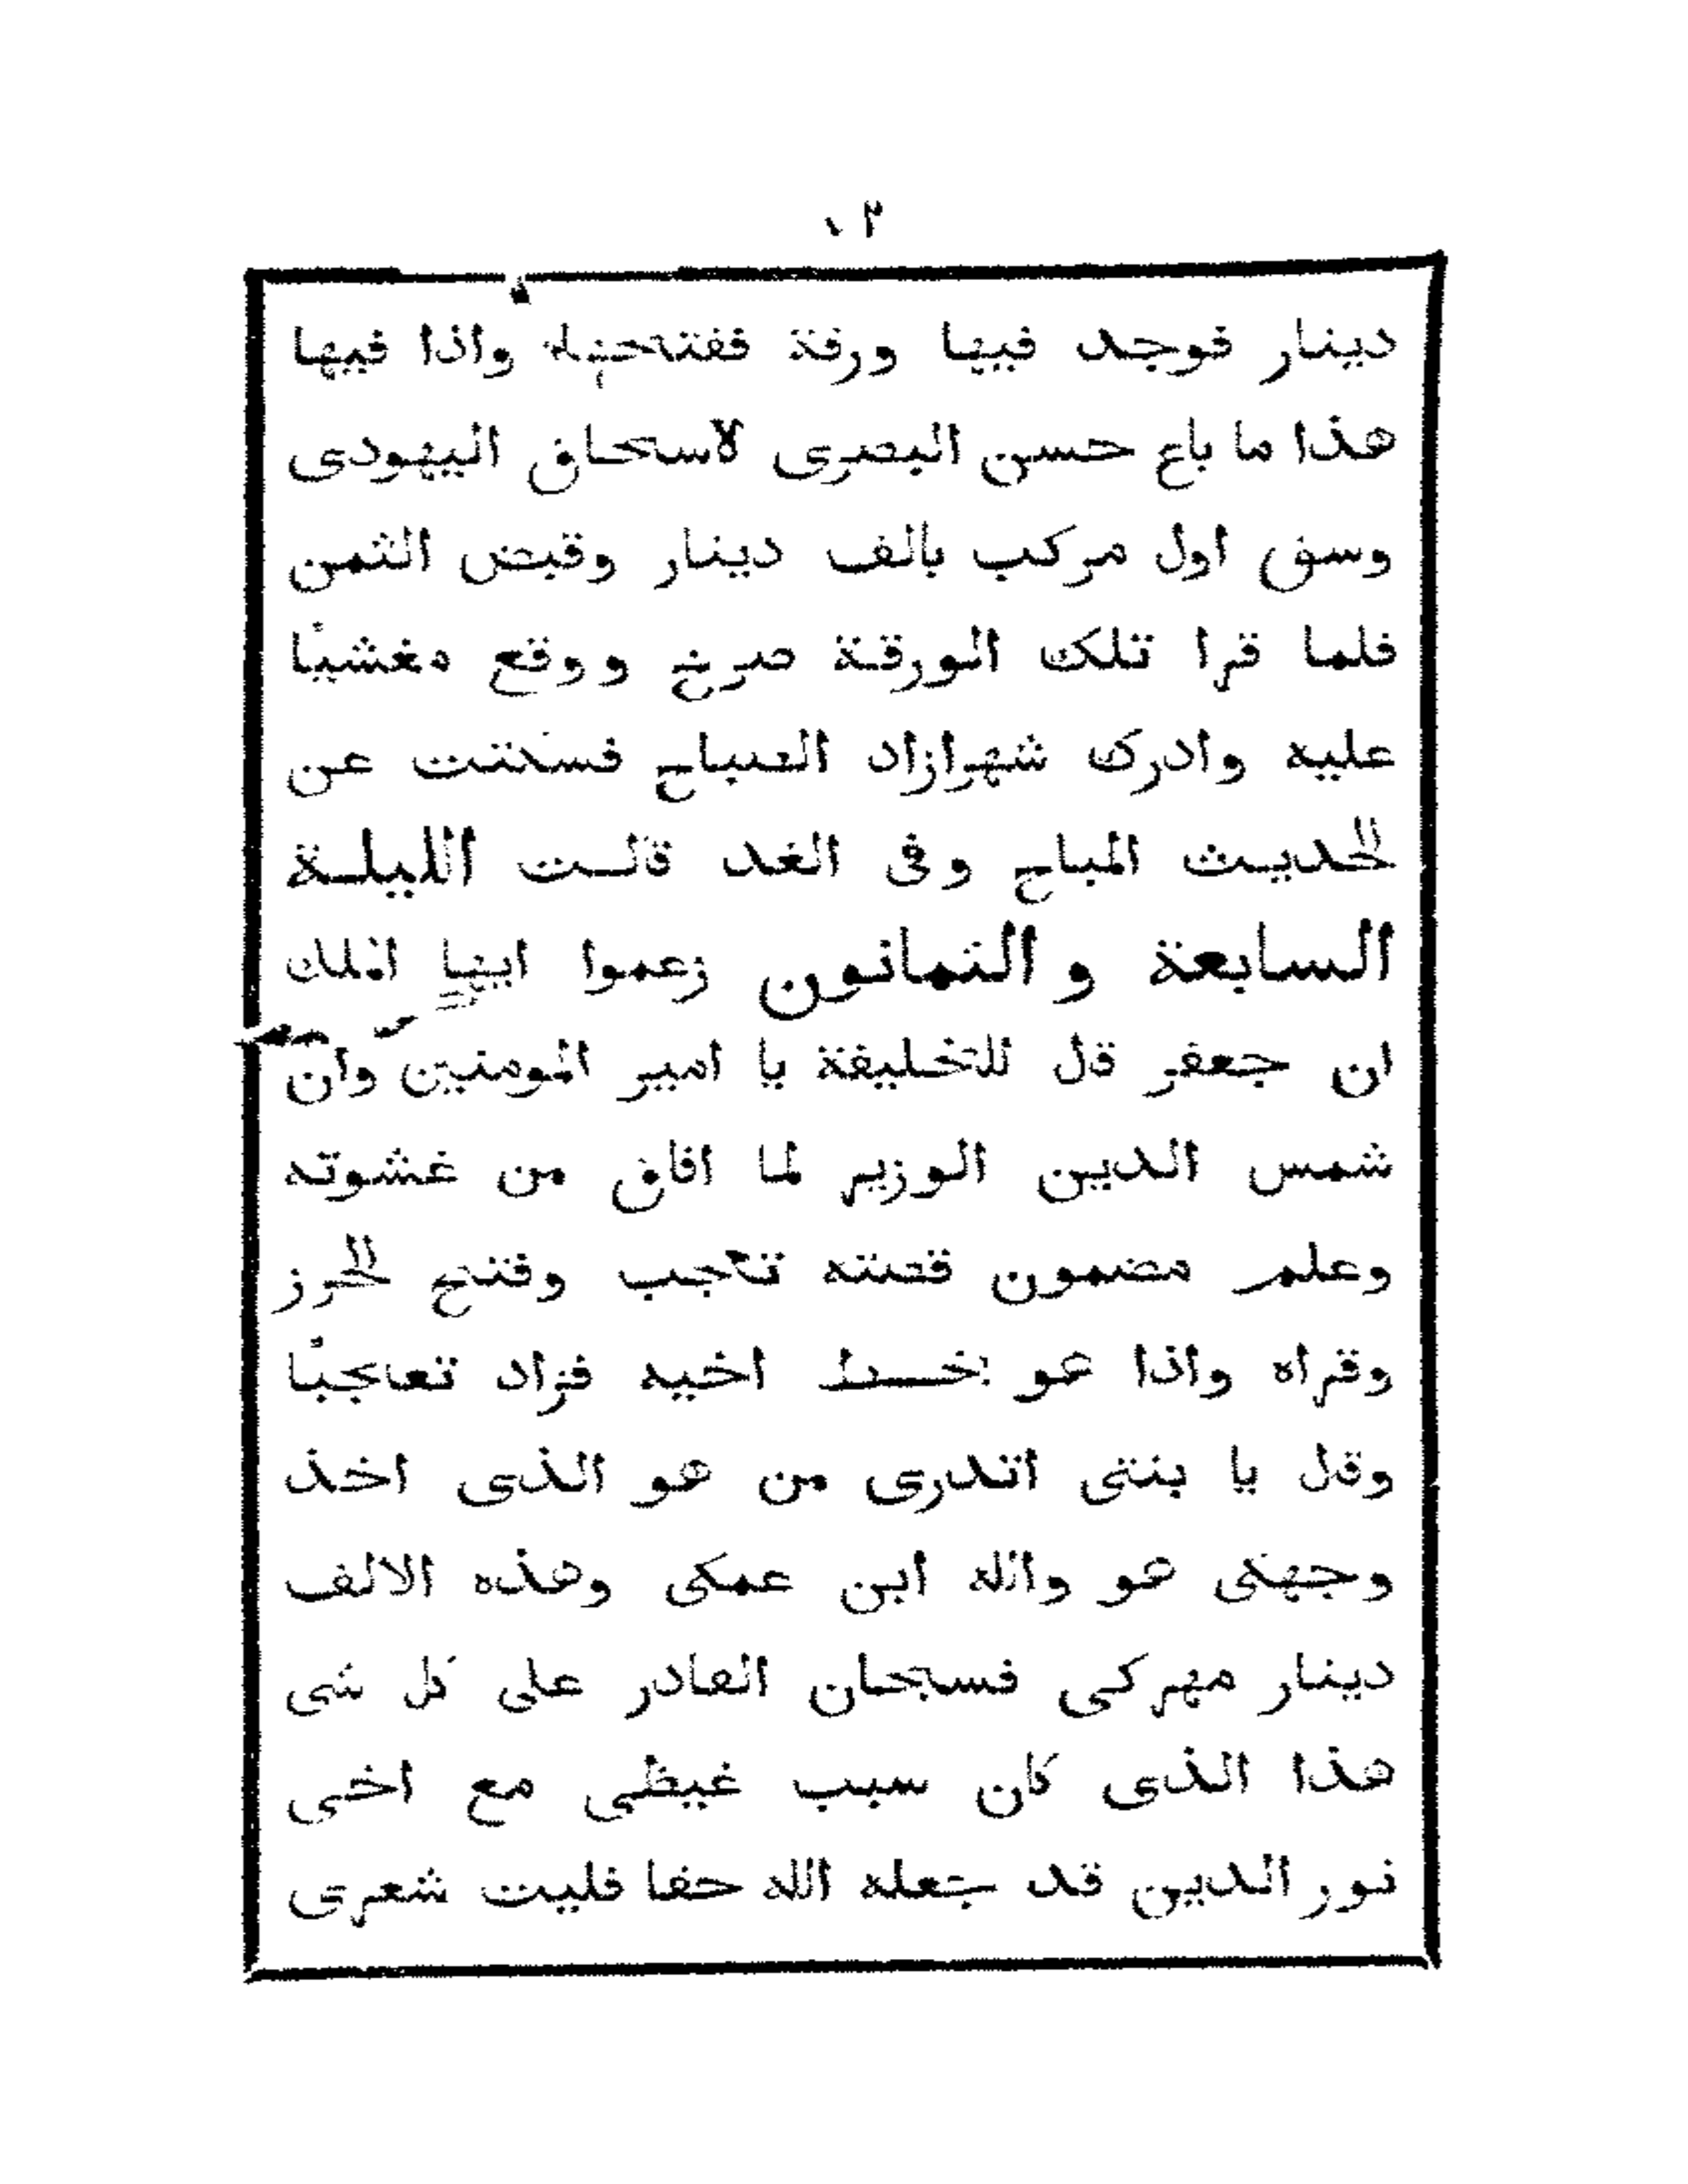 ٢٠
دينار فوجد فيها ورقة ففتحها واذا فيها
هذا ما باع حسن البصرى لاسحاق اليهودى
وسق اول مركب بالف دينار وقبض الثمن
فلما قرا تلك الورقة صرخ ووقع مغشيًا
عليه وادرك شهرازاد الصباح فسكتت عن
الحديث المباح وفى الغد قالت الليلة
السابعة والثمانون زعموا ايها الملك
ان جعفر قال للخليفة يا امير المومنين وان
شمس الدين الوزير لما افاق من غشوته
وعلم مضمون قصته تعجب وفتح الحرز
وقراه واذا هو بخط اخيه فزاد تعاجبًا
وقال يا بنتى اتدرى من هو الذى اخذ
وجهكى هو والله ابن عمكى وهذه الالف
دينار مهركى فسبحان القادر على كل شى
هذا الذى كان سبب غيظى مع اخى
نور الدين قد جعله الله حقا فليت شعرى